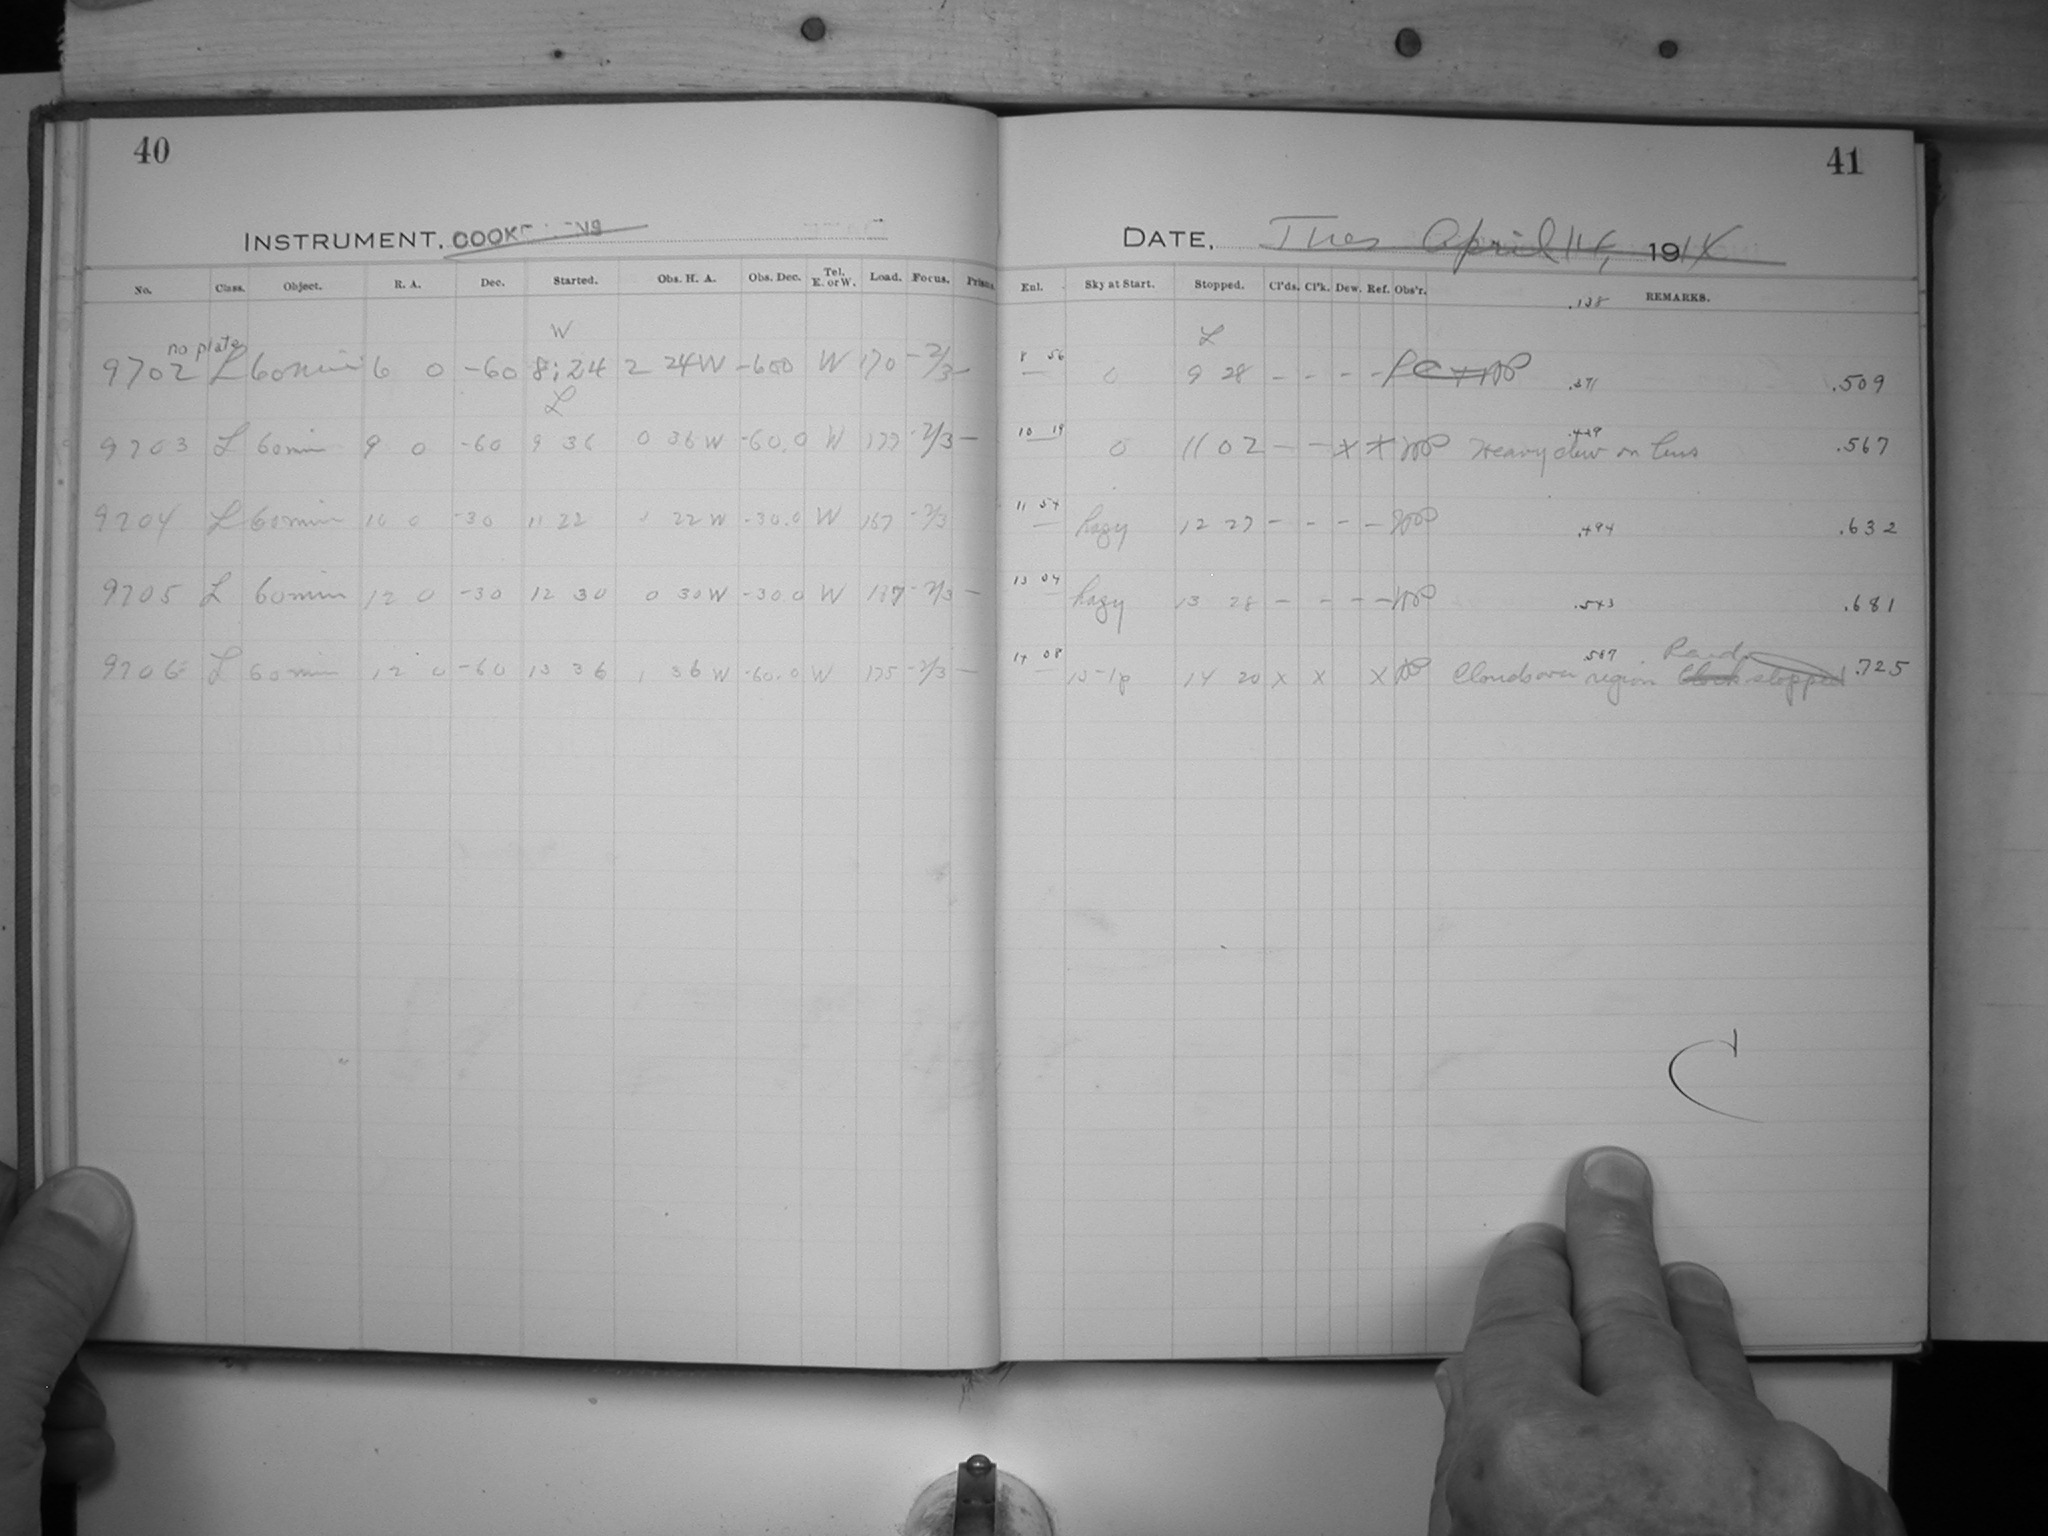 40
41
INSTRUMENT, COOKE
DATE, Tues April 14, 1914
No. Class. Object. R. A. Dec. Started. Obs. H. A. Obs. Dec. Tel. E. or W. Load. Focus. Prism. Enl. Sky at Start. Stopped. Cl'ds. Cl'k. Dew. Ref. Obs'r. REMARKS.
.138
W L
no plate
9702 L 60 min 6 0 -60 8:24 2 24W -600 W 170 -2/3 - 8 56 0 9 28 - - - - .371 .509
L
9703 L 60 min 9 0 -60 9 36 0 36 W -60.0 W 177 -2/3 - 10 19 0 11 02 - - X X Heavy dew on lens .429 .567
9704 L 60 min 10 0 -30 11 22 1 22 W -30.0 W 167 -2/3 11 54 hazy 12 27 - - - - .494 .632
9705 L 60 min 12 0 -30 12 30 0 30 W -30 0 W -2/3 - 13 04 hazy 13 28 - - - - .543 .681
9706 L 60 min 12 0 -60 13 36 1 36 W -60.0 W 175 -2/3 - 14 08 14 20 X X X Clouds over region Clock stopped .587 .725